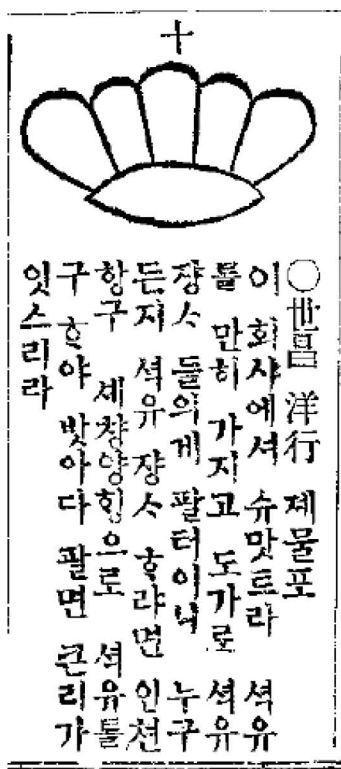 ○世昌 洋行 제물포
이 회샤에셔 슈맛트라 셕유
를 만히 가지고 도가로 셕유
쟝ᄉ 들의게 팔터이니 누구
든지 셕유 쟝ᄉ ᄒ랴면 인쳔
항구 셰챵양ᄒᆡᆼ으로 셕유를
구 ᄒ야 밧아다 팔면 큰리가
잇스리라